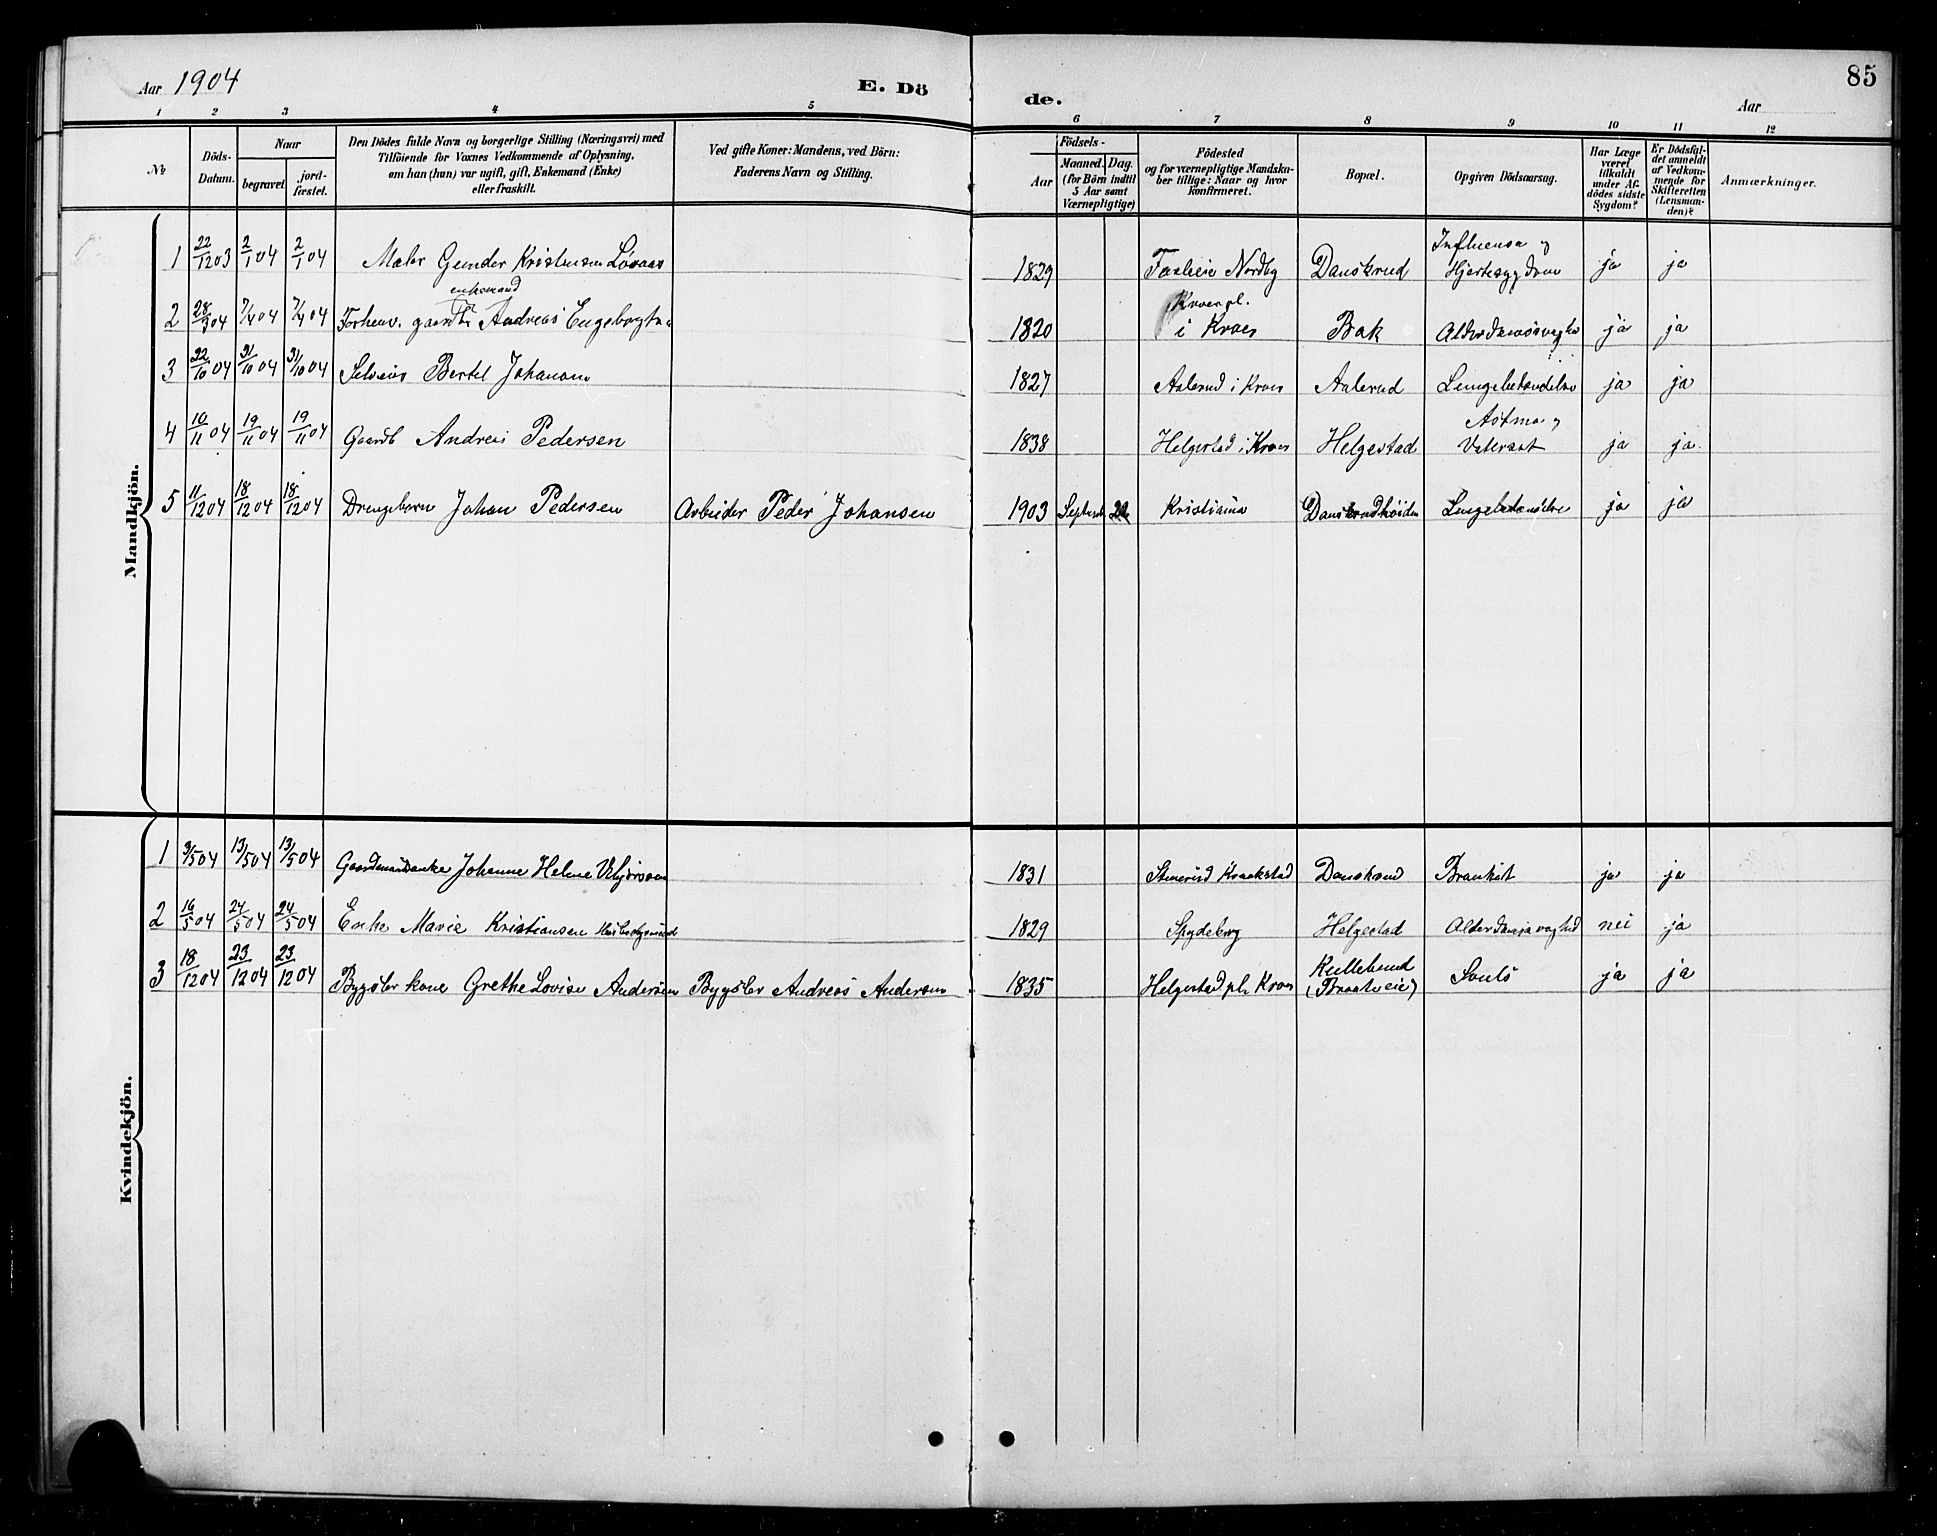 Aar 1904
E. Dö
de.
Aar
85
1 2 3 4 5 6 7 8 9 10 11 12
No
Döds-Datum.
Naar
begravet
jord-fæstet.
Den Dödes fulde Navn og borgerlige Stilling (Næringsvei) med
Tilföiende for Voxnes Vedkommende af Oplysning,
om han (hun) var ugift, gift, Enkemand (Enke)
eller fraskilt.
Ved gifte Koner: Mandens, ved Börn:
Faderens Navn og Stilling.
Födsels-
Aar
Maaned. Dag.
(for Börn indtil
5 Aar samt
Værnepligtige)
Födested
og for værnepligtige Mandska-
ber tillige: Naar og hvor
konfirmeret.
Bopæl.
Opgiven Dödsaarsag.
Har Læge
været
tilkaldt
under Af-
dödes sidste
Sygdom?
Er Dödsfal-
det anmeldt
af Vedkom-
mende for
Skifteretten
(Lensman-
den)?
Anmærkninger.
Mandkjön.
1 22/12 03 2/1 04 2/1 04 Maler Gunder Kristensen Lövaas 1829 Nordby Danskrud Influensa og Hjertesygdom ja ja
2 28/3 04 7/4 04 7/4 04 Forhenv. gaardbr enkemand Andreas 1820 Kroer pl. i Kroer Bak Alderdomssvaghed ja ja
3 22/10 04 31/10 04 31/10 04 Selveier Bertel Johansen 1827 Aalerud i Kroer Aalerud Lungebetændelse ja ja
4 10/11 04 19/11 04 19/11 04 Gaardb Andreas Pedersen 1838 Helgestad i Kroer Helgestad Astma og Vatersot ja ja
5 11/12 04 18/12 04 18/12 04 Drengebarn Johan Pedersen Arbeider Peder Johansen 1903 Septemb 22 Kristiania Danskrudhöiden Lungebetændelse ja ja
Kvindekjön.
1 3/5 04 13/5 04 13/5 04 Gaardmandsenke Johanne Helene 1831 Kraakstad Danskrud ja ja
2 16/5 04 24/5 04 24/5 04 Enke Marie Kristiansen 1829 Spydeberg Helgestad Alderdomssvaghed nei ja
3 18/12 04 23/12 04 23/12 04 Bygsler kone Grethe Lovise Andersen Bygsler Andreas Andersen 1835 Helgestad pl. Kroer Kullebund (Braateeie) ja ja